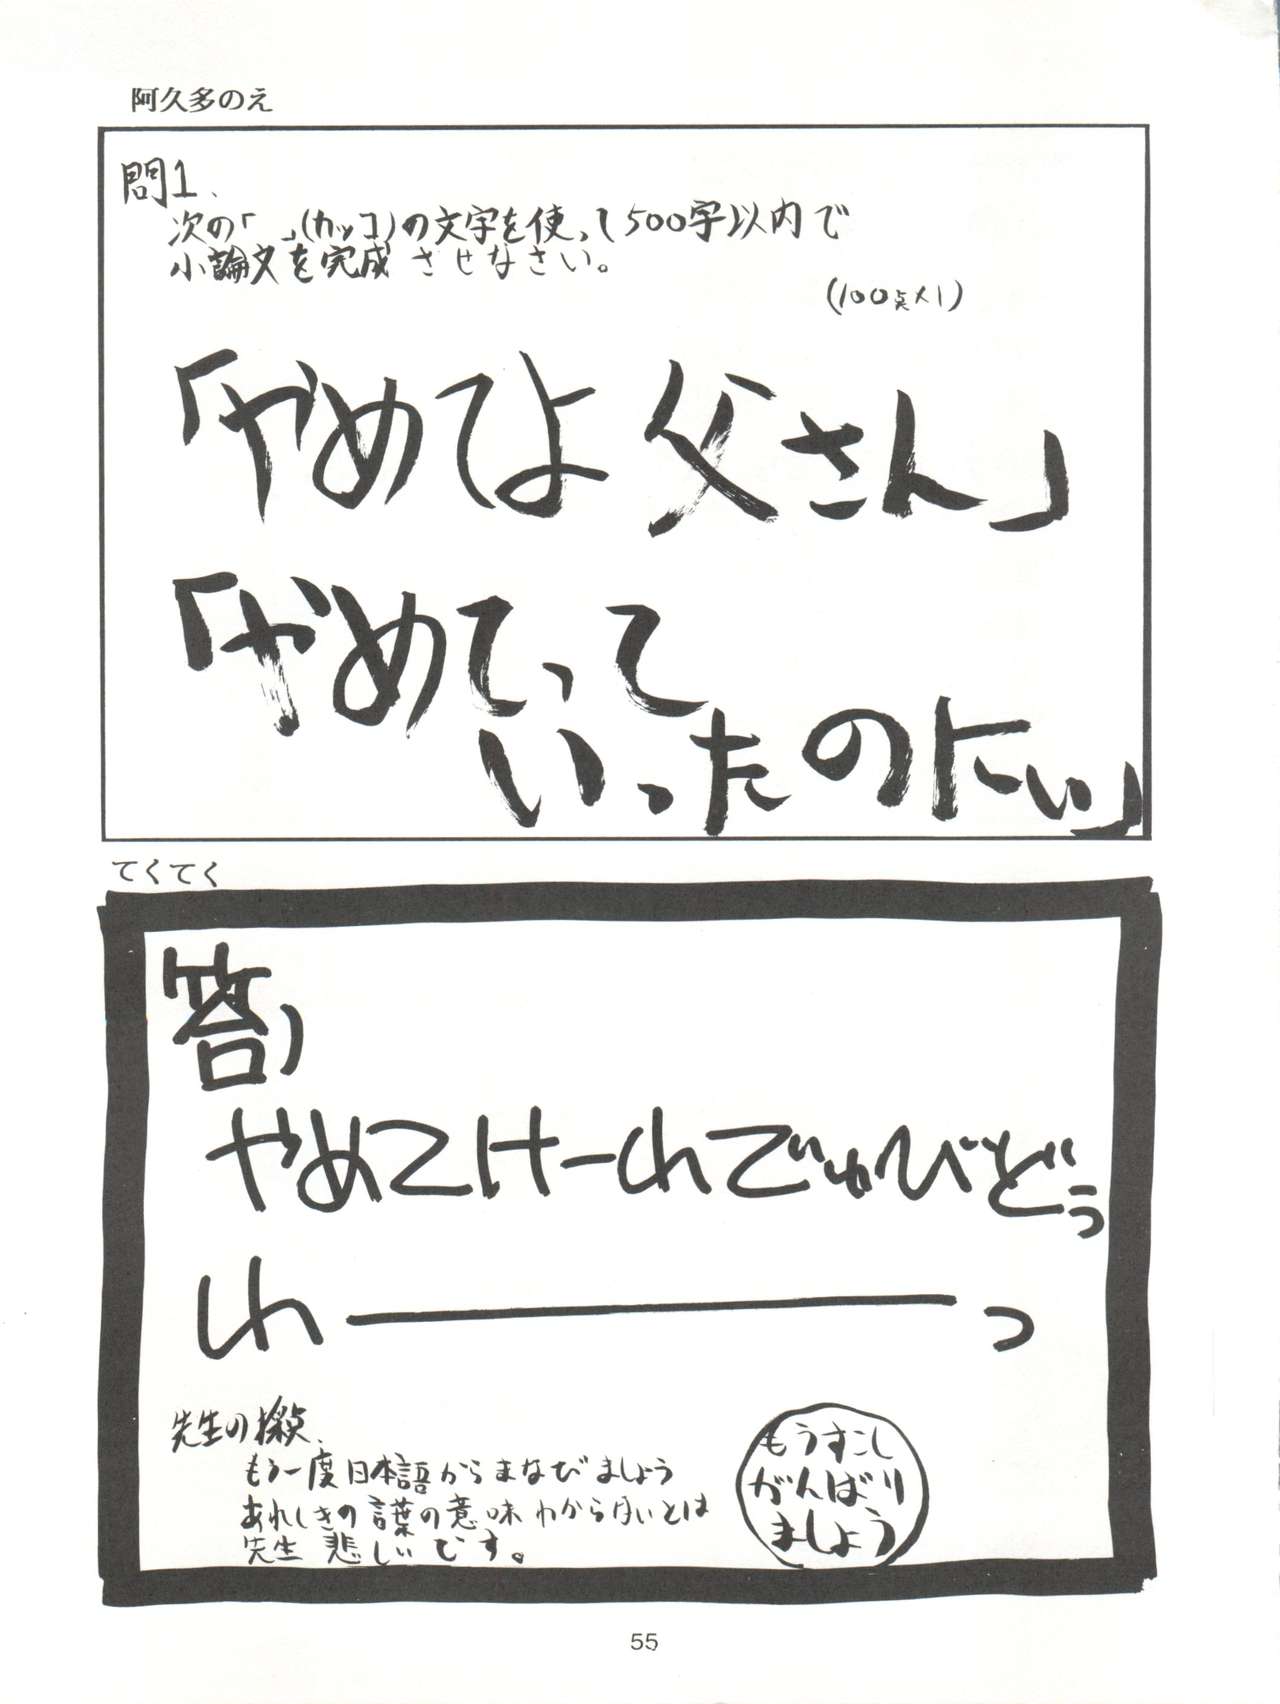 阿久多のえ
問1、
次の「　」(カッコ)の文字を使って500字以内で
小論文を完成させなさい。
(100点×1)
「やめてよ 父さん」
「やめてって
いったのにぃ」
てくてく
答)
やめてけーれでぃゅびどぅ
わーっ
先生の採点.
もう一度日本語からまなびましょう
あれしきの言葉の意味わからないとは
先生 悲しいです。
もうすこし
がんばり
ましょう
55